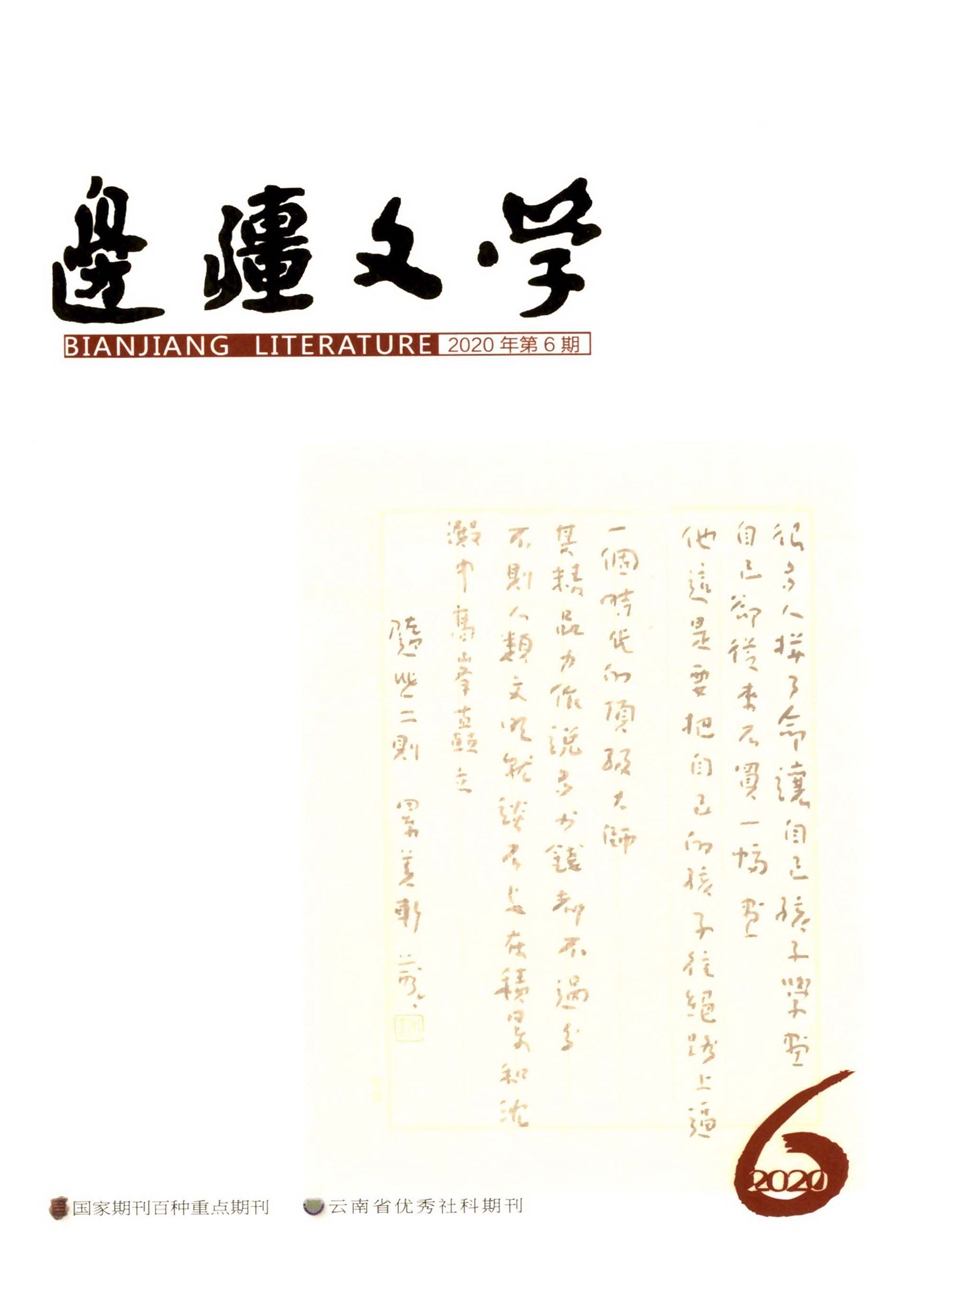 邊疆文学
BIANJIANG LITERATURE 2020 年第 6 期
很多人拼了命讓自己孩子學畫
自己卻從來不買一幅畫
他這是要把自己的孩子往絕路上逼
一個時代的頂級大師
其精品力作說多少錢都不過分
不則人類文明就談不上在積累和沈
澱中高峯矗立
隨些二則 累美軒
国家期刊百种重点期刊
云南省优秀社科期刊
6
2020